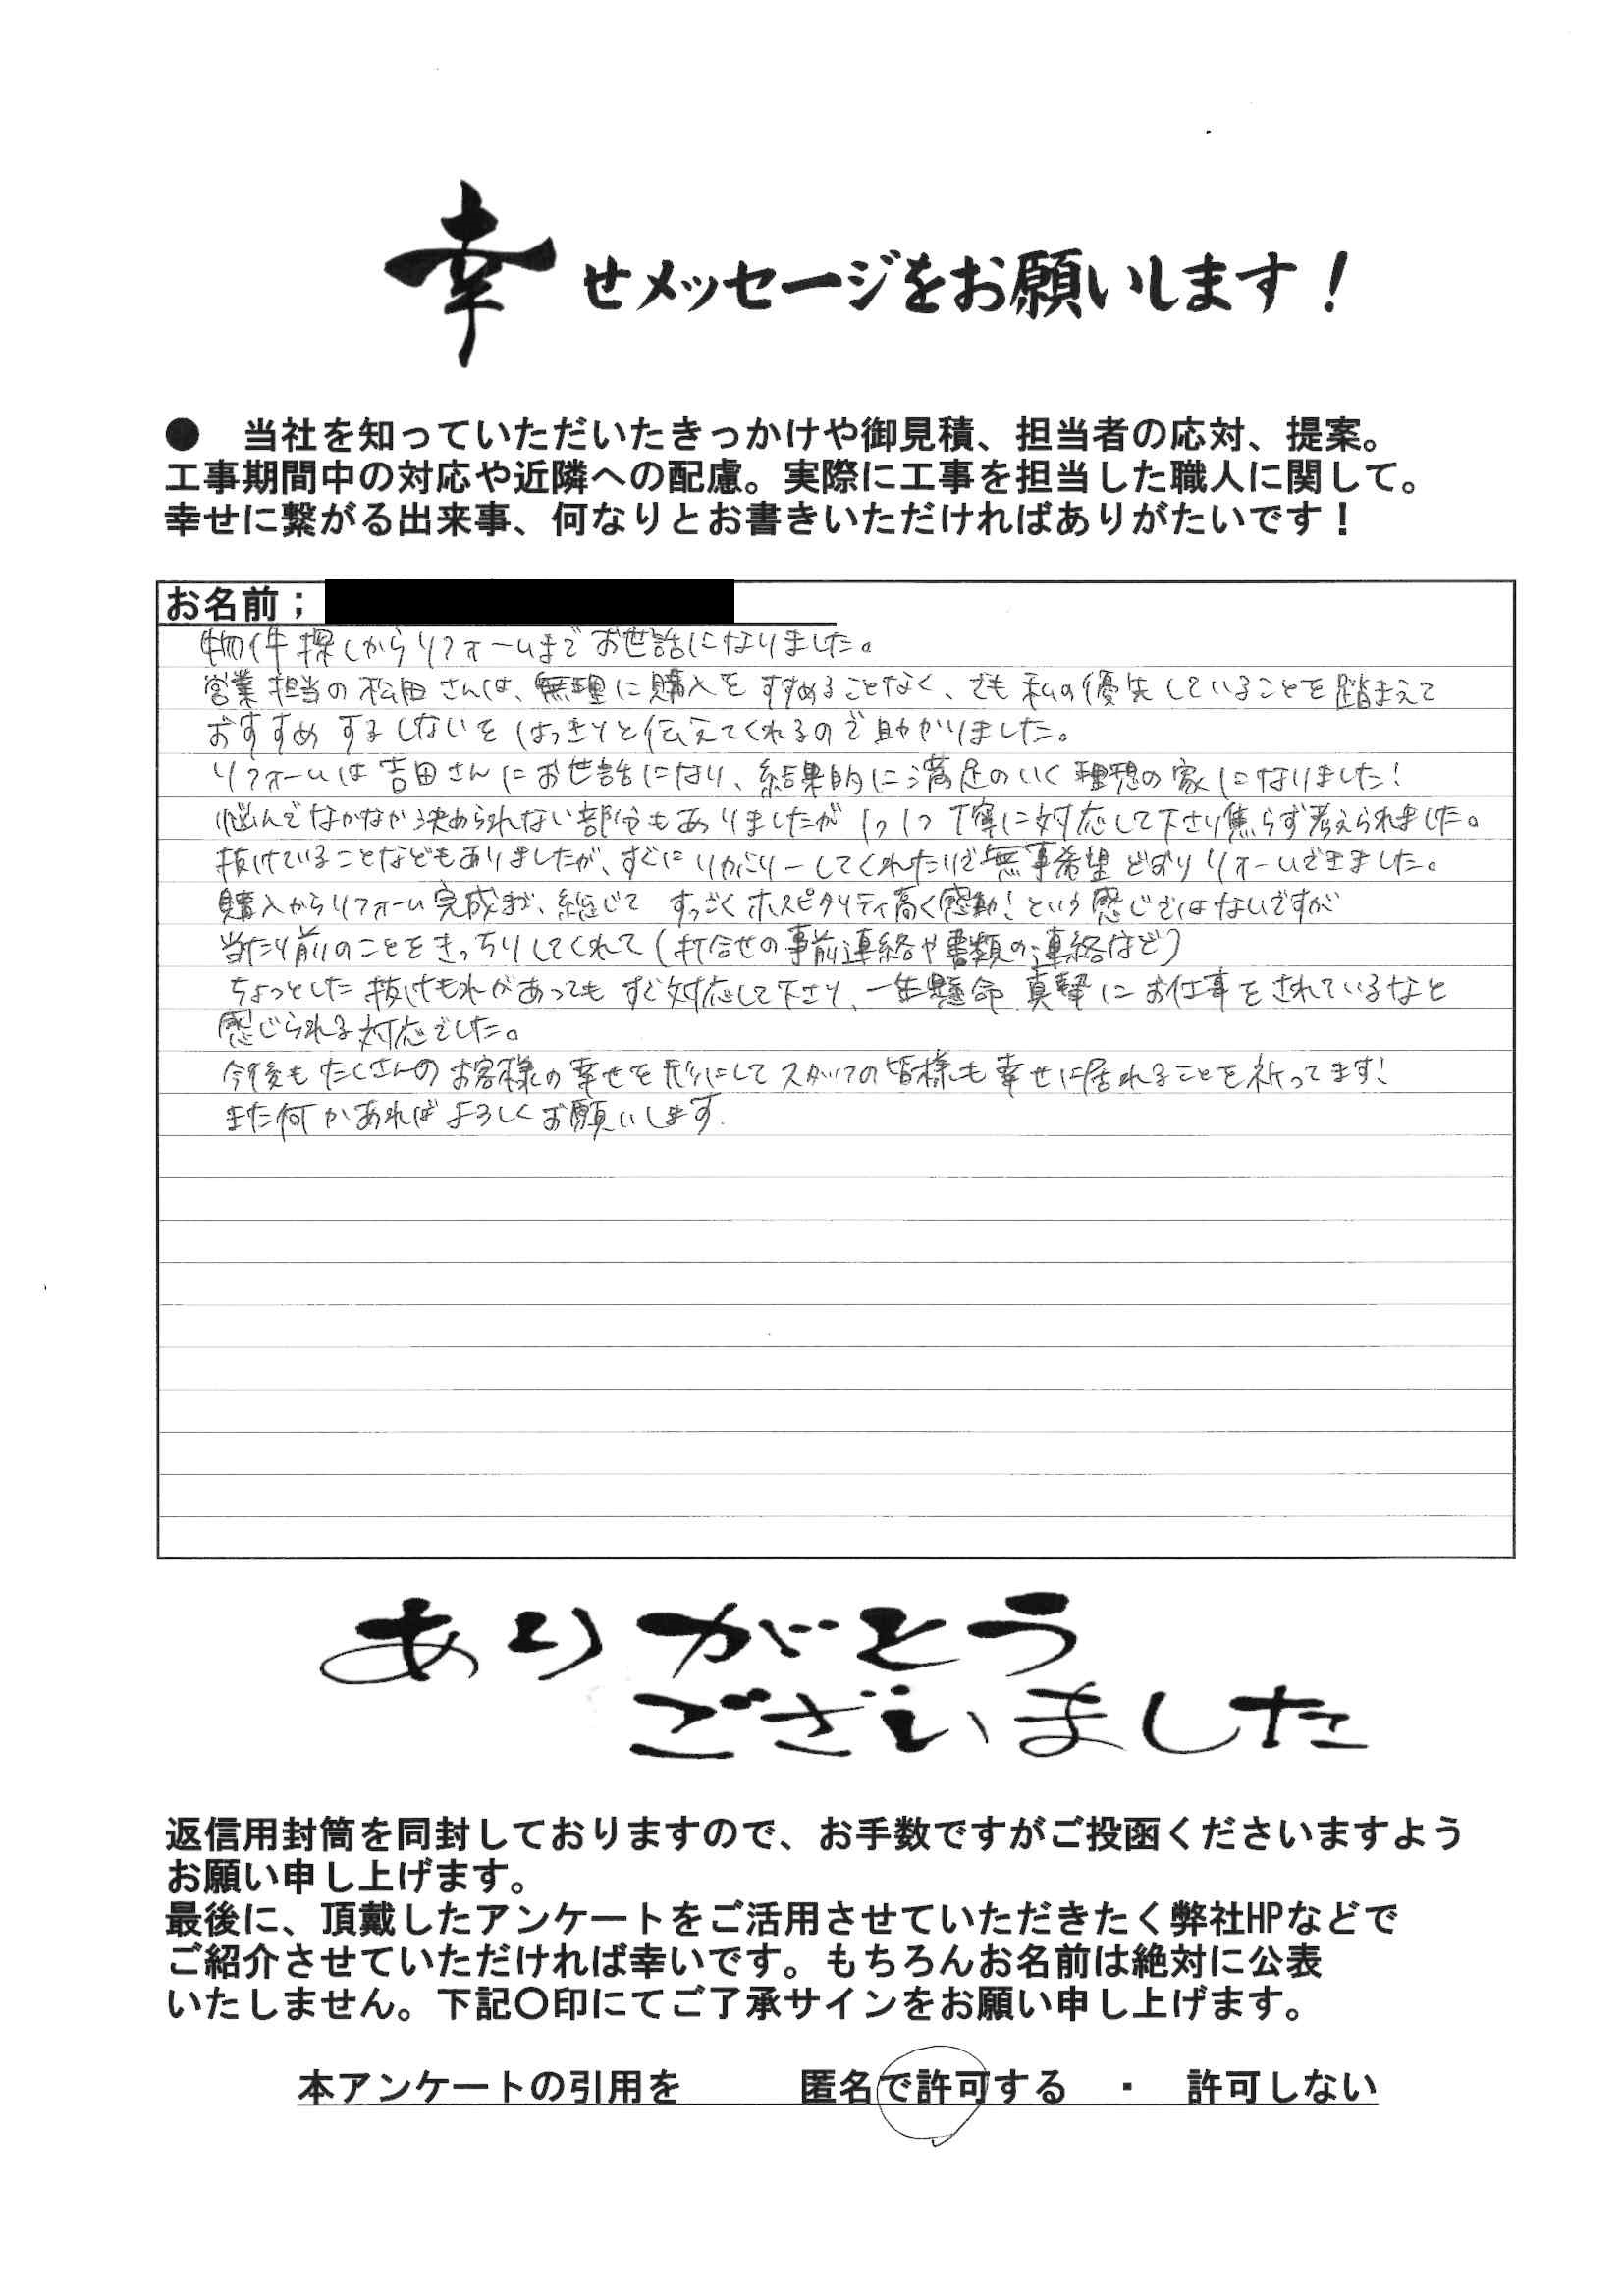 幸せメッセージをお願いします！
● 当社を知っていただいたきっかけや御見積、担当者の応対、提案。
工事期間中の対応や近隣への配慮。実際に工事を担当した職人に関して。
幸せに繋がる出来事、何なりとお書きいただければありがたいです！
お名前；
物件探しからリフォームまでお世話になりました。
営業担当の松田さんは、無理に購入をすすめることなく、でも私の優先していることを踏まえて
おすすめするしないをはっきりと伝えてくれるので助かりました。
リフォームは吉田さんにお世話になり、結果的に満足のいく理想の家になりました！
悩んでなかなか決められない部分もありましたが1つ1つ丁寧に対応して下さり焦らず考えられました。
抜けていることなどもありましたが、すぐにリカバリーしてくれたりで無事希望どおりリフォームできました。
購入からリフォーム完成まで、総じてすっごくホスピタリティ高く感動！という感じではないですが
当たり前のことをきっちりしてくれて（打合せの事前連絡や書類の連絡など）
ちょっとした抜けもれがあってもすぐ対応して下さり、一生懸命、真摯にお仕事をされているなと
感じられる対応でした。
今後もたくさんのお客様の幸せを形にしてスタッフの皆様も幸せに居れることを祈ってます！
また何かあればよろしくお願いします.
ありがとう
ございました
返信用封筒を同封しておりますので、お手数ですがご投函くださいますよう
お願い申し上げます。
最後に、頂戴したアンケートをご活用させていただきたく弊社HPなどで
ご紹介させていただければ幸いです。もちろんお名前は絶対に公表
いたしません。下記〇印にてご了承サインをお願い申し上げます。
本アンケートの引用を 匿名で許可する ・ 許可しない